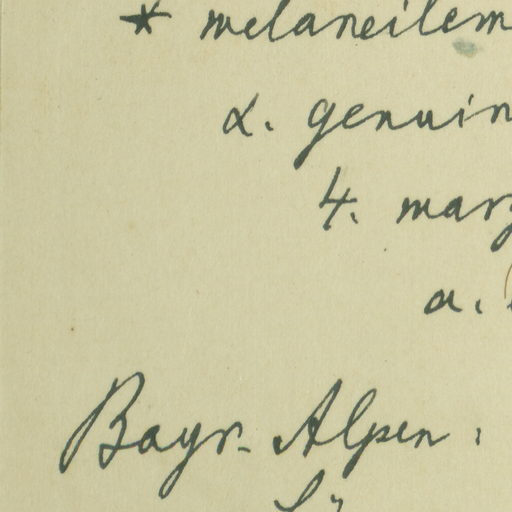 * melaneilem
α. genuin
4. marg
a.
Bayr. Alpen: